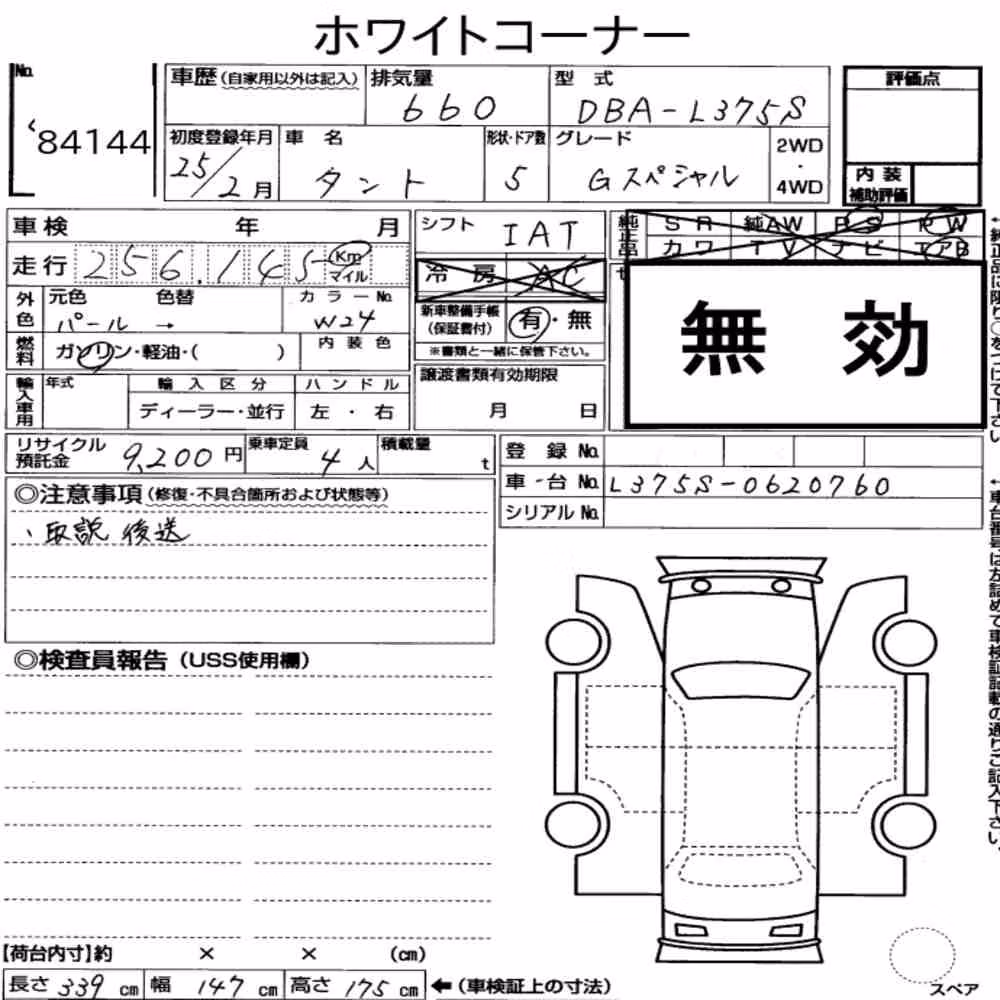 ホワイトコーナー
No. 84144
車歴 (自家用以外は記入)
排気量 660
型式 DBA-L375S
評価点
初度登録年月 25/2月
車名 タント
形状・ドア数 5
グレード Gスペシャル
2WD・4WD
内装補助評価
車検 年 月
シフト IAT
純正品 SR 純AW PS PW
カワ TV ナビ エアB
走行 256,145 Km マイル
冷房 AC
無効
外色 元色 パール → 色替
カラーNo. W24
新車整備手帳(保証書付) 有・無
※書類と一緒に保管下さい。
燃料 ガソリン・軽油・( )
内装色
輸入車用 年式
輸入区分 ディーラー・並行
ハンドル 左・右
譲渡書類有効期限
月 日
リサイクル預託金 9,200円
乗車定員 4人
積載量 t
登録No.
車台No. L375S-0620760
シリアルNo.
◎注意事項(修復・不具合箇所および状態等)
、取説 後送
◎検査員報告(USS使用欄)
【荷台内寸】約 × × (cm)
長さ 339 cm 幅 147 cm 高さ 175 cm ←(車検証上の寸法)
スペア
←純正品に限り○をつけて下さい。
←車台番号は左詰めで車検証記載の通りご記入下さい。